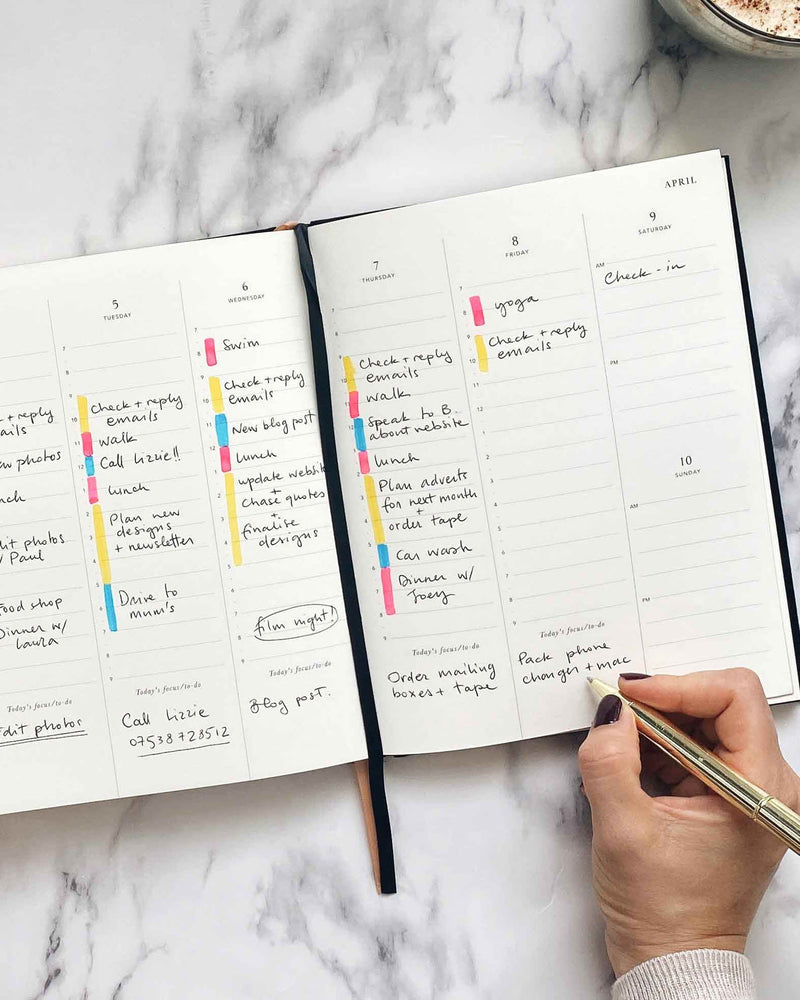 APRIL
+ reply
photos
Edit photos
w/ Paul
Food shop
Dinner w/
Laura
Today's focus/to-do
Edit photos
5
TUESDAY
7
8
9
10
11
12
1
2
3
4
5
6
7
8
9
Check + reply
emails
walk
Call Lizzie!!
lunch
Plan new
designs
+ newsletter
Drive to
mum's
Today's focus/to-do
Call Lizzie
07538 728512
6
WEDNESDAY
7
8
9
10
11
12
1
2
3
4
5
6
7
8
9
Swim
Check + reply
emails
New blog post
lunch
update website
+
chase quotes
+
finalise
designs
film night!
Today's focus/to-do
Blog post.
7
THURSDAY
7
8
9
10
11
12
1
2
3
4
5
6
7
8
9
Check + reply
emails
walk
Speak to B.
about website
lunch
Plan adverts
for next month
+
order tape
Car wash
Dinner w/
Joey
Today's focus/to-do
Order mailing
boxes + tape
8
FRIDAY
7
8
9
10
11
12
1
2
3
4
5
6
7
8
9
yoga
Check + reply
emails
Today's focus/to-do
Pack phone
charger + mac
9
SATURDAY
AM
Check-in
PM
10
SUNDAY
AM
PM